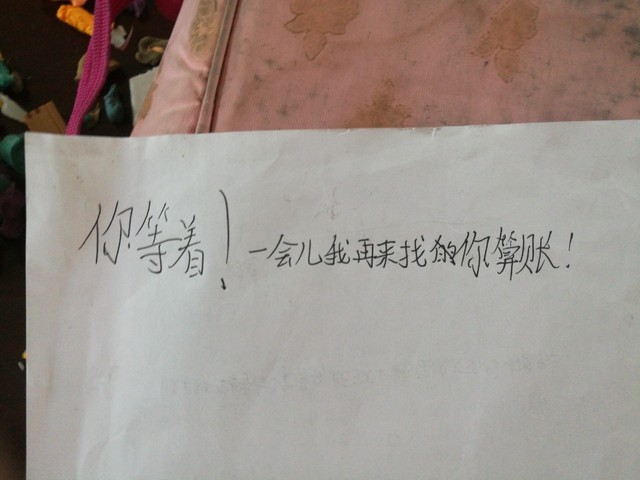 你等着！一会儿我再来找你算账！